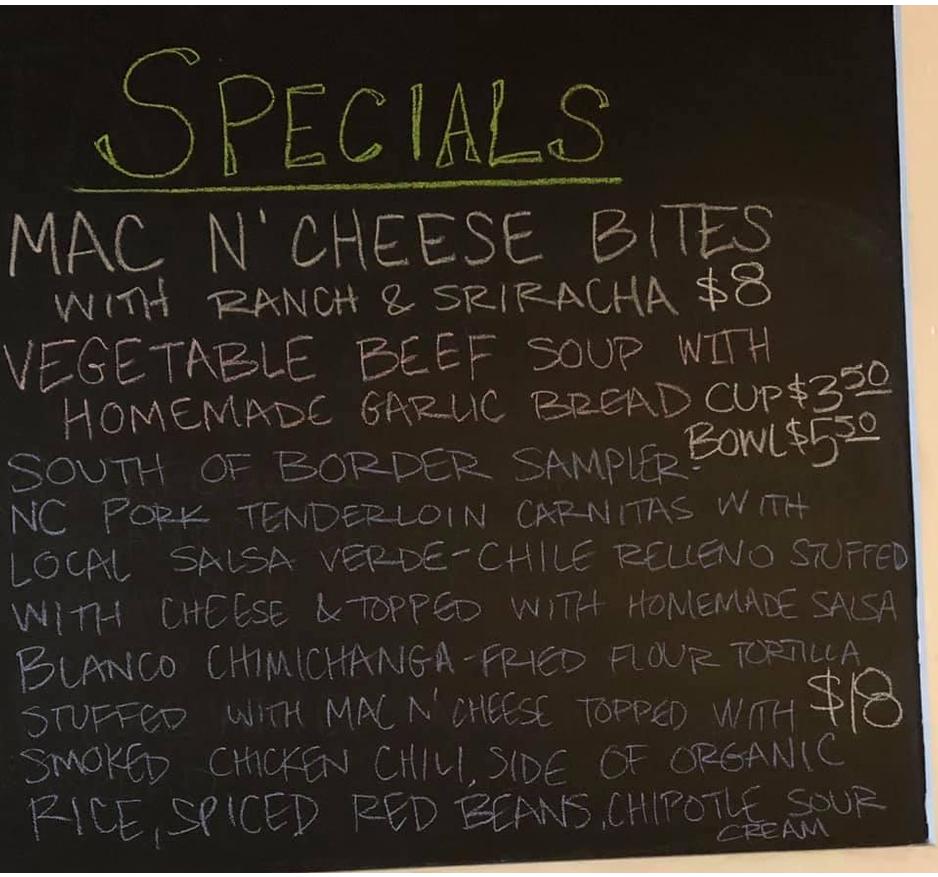 SPECIALS
MAC N' CHEESE BITES
WITH RANCH & SRIRACHA $8
VEGETABLE BEEF SOUP WITH
HOMEMADE GARLIC BREAD CUP $3.50
BOWL $5.50
SOUTH OF BORDER SAMPLER-
NC PORK TENDERLOIN CARNITAS WITH
LOCAL SALSA VERDE-CHILE RELLENO STUFFED
WITH CHEESE & TOPPED WITH HOMEMADE SALSA
BLANCO CHIMICHANGA-FRIED FLOUR TORTILLA
STUFFED WITH MAC N' CHEESE TOPPED WITH $18
SMOKED CHICKEN CHILI, SIDE OF ORGANIC
RICE, SPICED RED BEANS, CHIPOTLE SOUR
CREAM